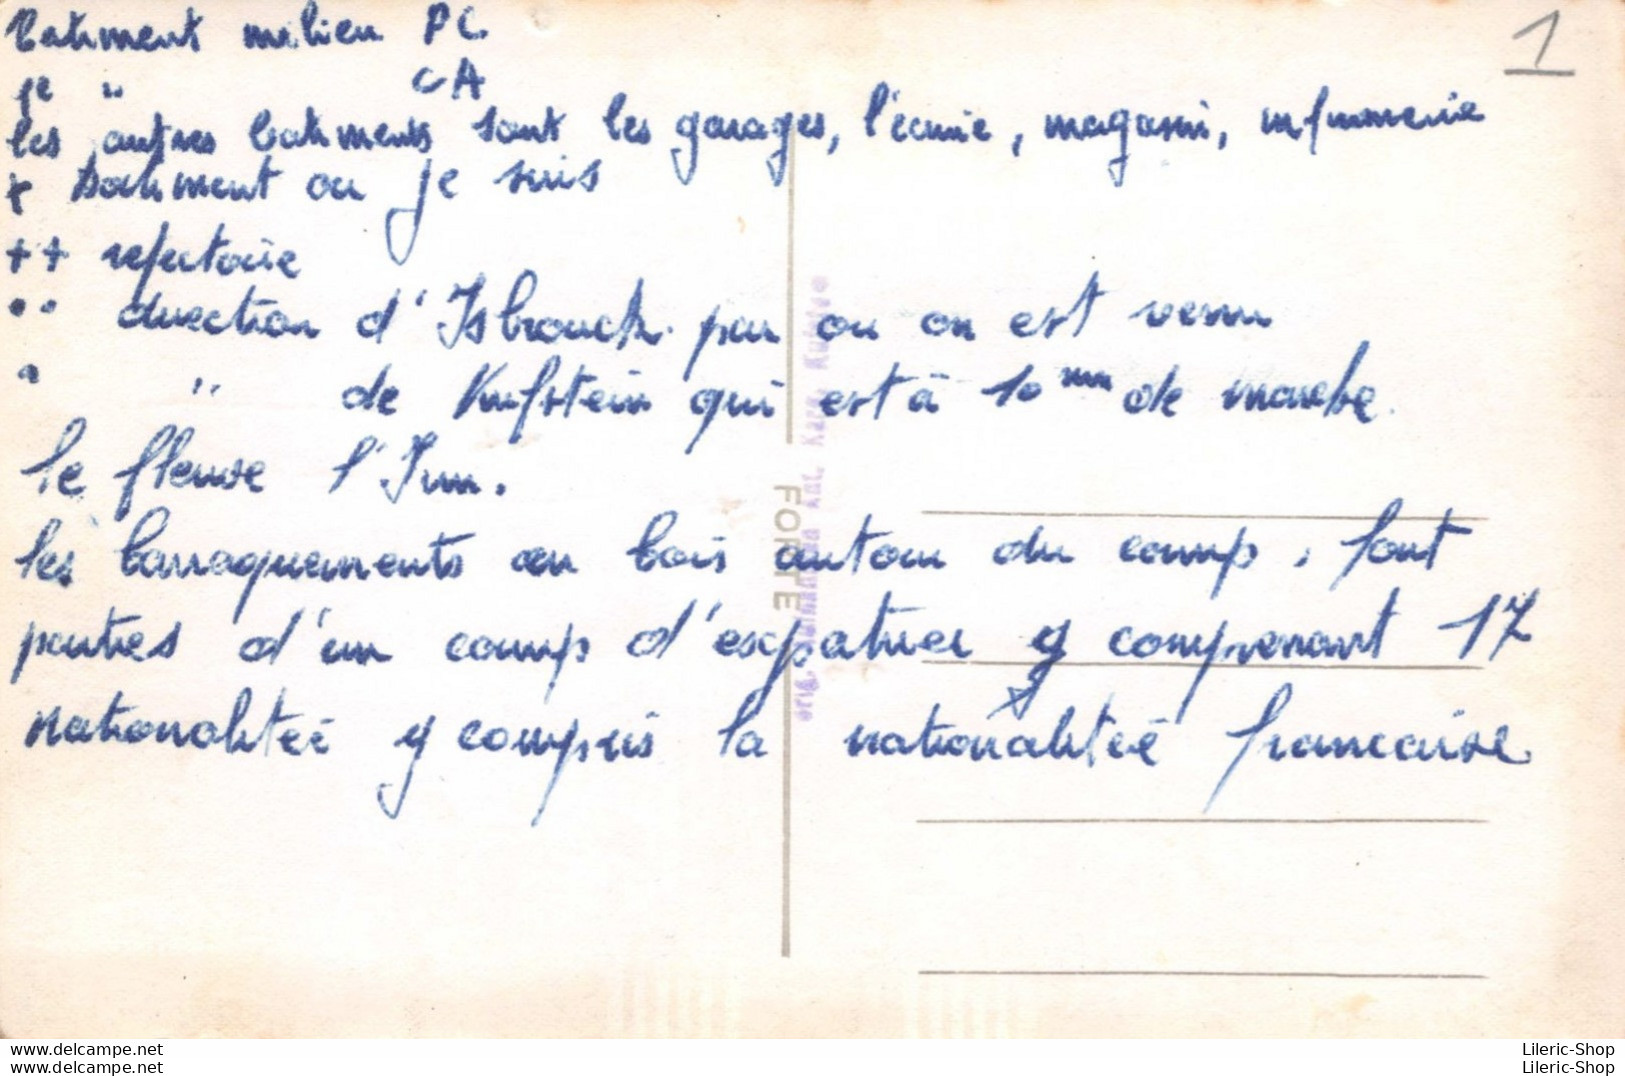 batiment milieu PC.
1
je " CA
les autres batiments sont les garages, l'écurie, magasin, infirmerie
+ batiment ou je suis
++ refectoire
•• direction d'Isbrouck par ou on est venu
• " de Kufstein qui est à 10 mn de marche.
le fleuve l'Inn.
les barraquements en bois autour du camp, font
parties d'un camp d'expatrier y comprenant 17
nationalitéé y compris la nationalitéé francaise
FORTE
www.delcampe.net
www.delcampe.net
Lileric-Shop
Lileric-Shop